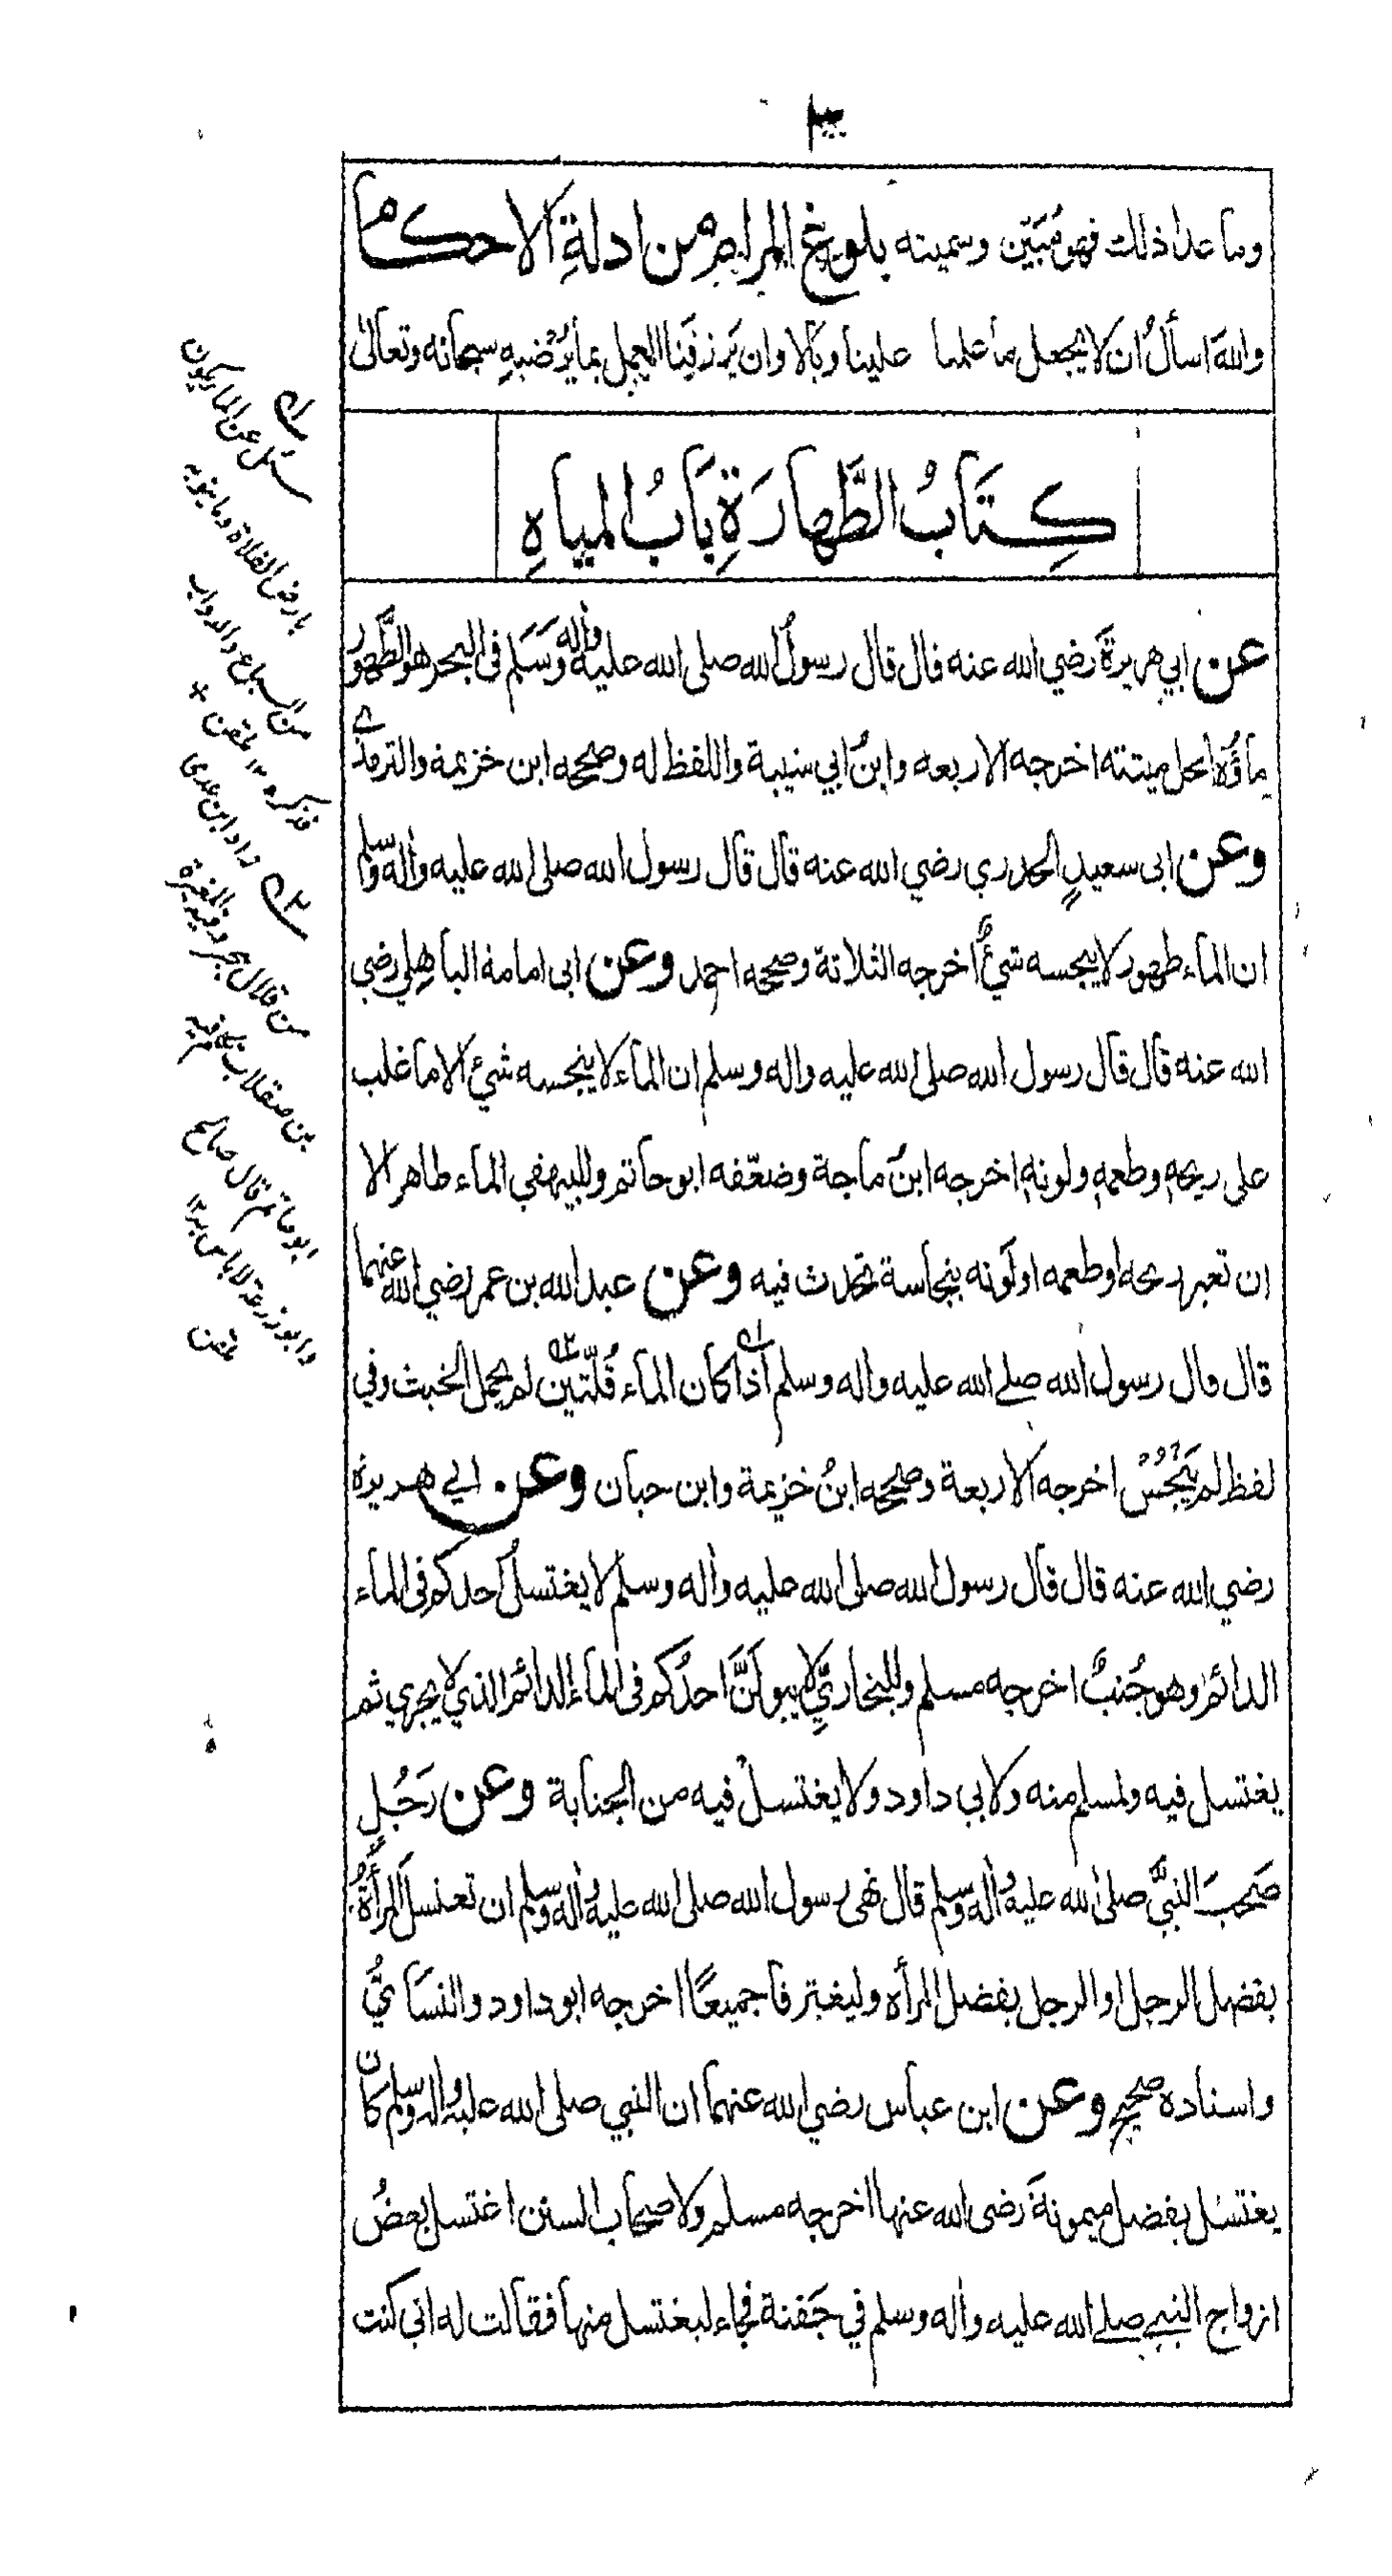 ٣
وما عدا ذلك فهو مُبَيَّن وسميته بلوغ المرام من ادلةِ الاحكام
واللهَ اسألُ ان لا يجعل ما علمنا علينا وبالا وان يَرزقَنا العمل بما يَرْضيهِ سبحانه وتعالى
كِتَابُ الطَّهارَةِ بَابُ المياهِ
عن ابي هريرةَ رضي الله عنه قال قال رسولُ الله صلى الله عليه واٰله وَسَلم في البحر هو الطَّهور
ماؤُه الحل ميتته اخرجه الاربعه وابنُ ابي شيبة واللفظ له وصححه ابن خزيمة والترمذي
وعن ابى سعيدٍ الخدري رضي الله عنه قال قال رسول الله صلى الله عليه واٰله وسلم
ان الماء طهور لا ينجسه شيءٌ اخرجه الثلاثة وصححه احمد وعن ابى امامة الباهِلي رضي
الله عنه قال قال رسول الله صلى الله عليه واله وسلم ان الماء لا ينجسه شيءٌ الا ما غلب
على ريحهٖ وطعمهٖ ولونهٖ اخرجه ابنُ ماجة وضعّفه ابو حاتم وللبيهقي الماء طاهر الا
ان تغير ريحه او طعمه او لَونه بنجاسة تحدث فيه وعن عبد الله بن عمر رضي الله عنهما
قال قال رسول الله صلے الله عليه واٰله وسلم اذا كان الماء قُلّتين لم يحمل الخبث وفي
لفظ لم يَنْجُسْ اخرجه الاربعة وصححه ابنُ خزيمة وابن حبان وعن ابي هريرة
رضي الله عنه قال قال رسول الله صلى الله عليه واٰله وسلم لا يغتسلُ احدكم في الماء
الدائم وهو جُنبٌ اخرجه مسلم وللبخاريِّ لا يبولَنَّ احدُكم في الماء الدائم الذي لا يجري ثم
يغتسل فيه ولمسلم منه ولابي داود ولا يغتسلْ فيه من الجنابة وعن رَجُلٍ
صَحِبَ النبيَّ صلى الله عليه واٰله وسلم قال نهى رسول الله صلى الله عليه واٰله وسلم ان تغتسل المرأةُ
بفضل الرجل او الرجل بفضل المرأه وليغترفا جميعًا اخرجه ابو داود والنسَائيُّ
واسناده صحيح وعن ابن عباس رضي الله عنهما ان النبي صلى الله عليه واله وسلم كان
يغتسل بفضل ميمونةَ رضى الله عنها اخرجه مسلم ولاصحاب السنن اغتسل بعضُ
ازواج النبي صلے الله عليه واٰله وسلم في جَفنة فجاء ليغتسل منها فقالت له اني كنت
سئل عن الماء يكون
بارض الفلاة وما ينوبه
من السباع والدواب
فذكره ١٢
زاد ابن عدى
من قلال هجر وفيه المغيرة
بن صقلاب
ابو حاتم قال صالح
وابو زرعة لا باس به ١٢